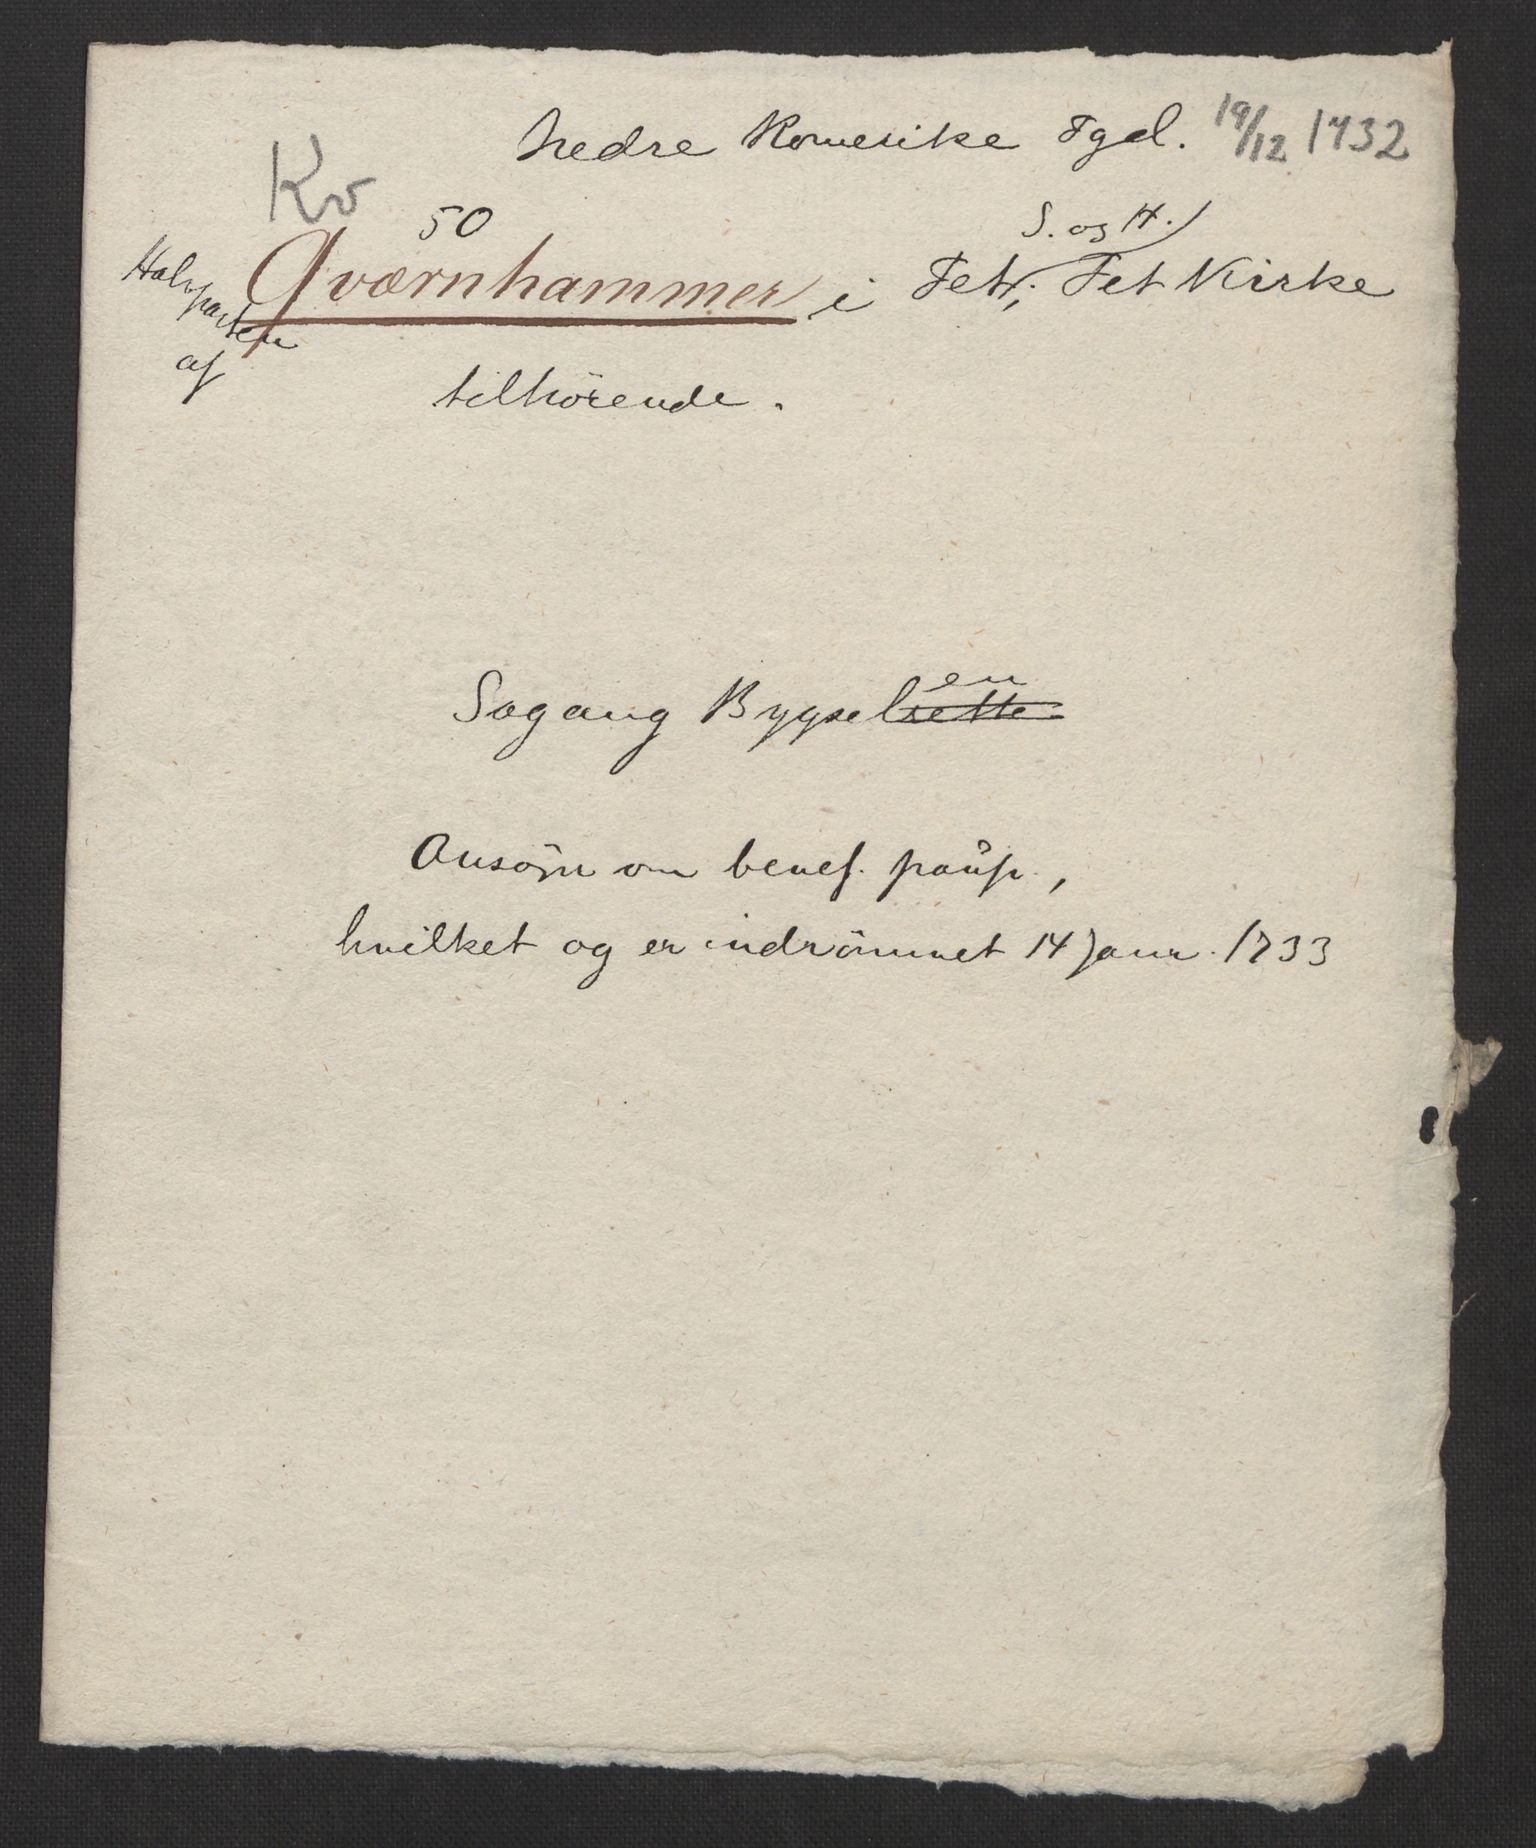 Nedre Romerike Fgd. 19/12 1732
Kv
50
S. og H.
Halvparten af Qværnhammer i Fet; Fet Kirke
tilhörende.
Sag ang Bygselen
Ansögn om benef. paup.,
hvilket og er indrömmet 14 Janr. 1733